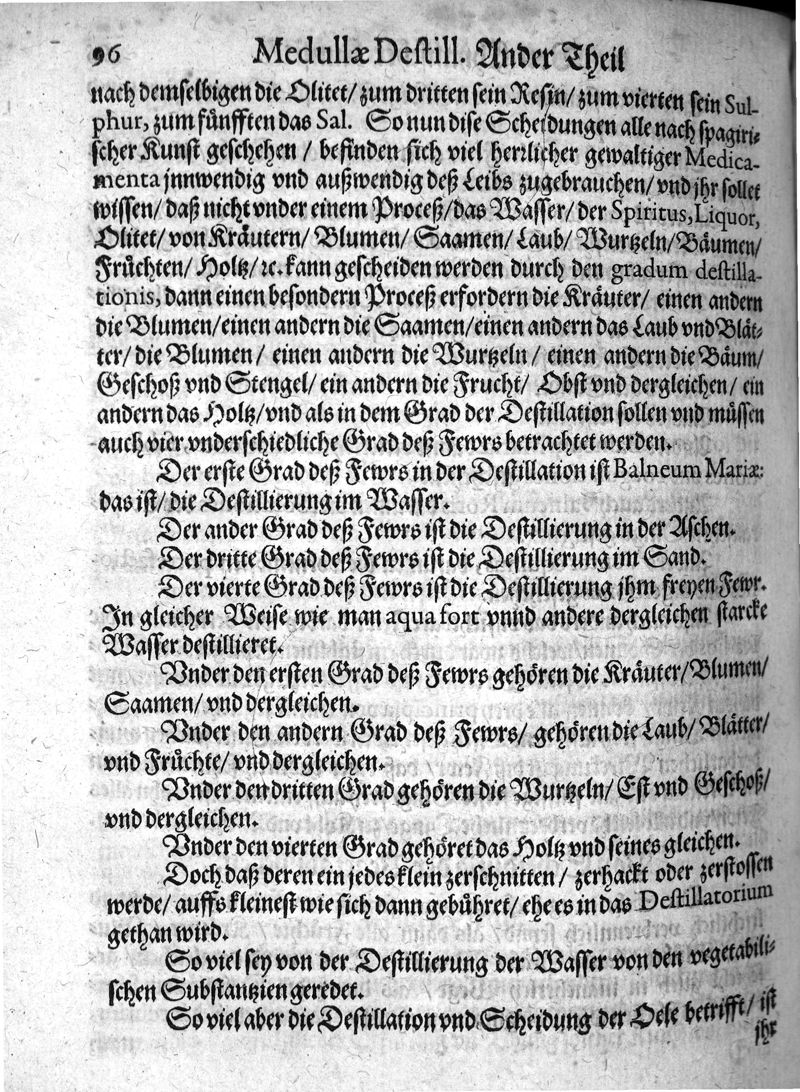 96 Medullæ Destill. Ander Theil
nach demselbigen die Olitet/ zum dritten sein Resin/ zum vierten sein Sul-
phur, zum fünfften das Sal. So nun dise Scheidungen alle nach spagiri-
scher Kunst geschehen/ befinden sich viel herrlicher gewaltiger Medica-
menta jnnwendig vnd außwendig deß Leibs zugebrauchen/ vnd jhr sollet
wissen/ daß nicht vnder einem Proceß/ das Wasser/ der Spiritus, Liquor,
Olitet/ von Kräutern/ Blumen/ Saamen/ Laub/ Wurtzeln/ Bäumen/
Früchten/ Holtz/ ꝛc. kann gescheiden werden durch den gradum destilla-
tionis, dann einen besondern Proceß erfordern die Kräuter/ einen andern
die Blumen/ einen andern die Saamen/ einen andern das Laub vnd Blät-
ter/ die Blumen/ einen andern die Wurtzeln/ einen andern die Bäum/
Geschoß vnd Stengel/ ein andern die Frucht/ Obst vnd dergleichen/ ein
andern das Holtz/ vnd als in dem Grad der Destillation sollen vnd müssen
auch vier vnderschiedliche Grad deß Fewrs betrachtet werden.
Der erste Grad deß Fewrs in der Destillation ist Balneum Mariæ:
das ist/ die Destillierung im Wasser.
Der ander Grad deß Fewrs ist die Destillierung in der Aschen.
Der dritte Grad deß Fewrs ist die Destillierung im Sand.
Der vierte Grad deß Fewrs ist die Destillierung jhm freyen Fewr.
In gleicher Weise wie man aqua fort vnnd andere dergleichen starcke
Wasser destillieret.
Vnder den ersten Grad deß Fewrs gehören die Kräuter/ Blumen/
Saamen/ vnd dergleichen.
Vnder den andern Grad deß Fewrs/ gehören die Laub/ Blätter/
vnd Früchte/ vnd dergleichen.
Vnder den dritten Grad gehören die Wurtzeln/ Est vnd Geschoß/
vnd dergleichen.
Vnder den vierten Grad gehöret das Holtz vnd seines gleichen.
Doch daß deren ein jedes klein zerschnitten/ zerhackt oder zerstossen
werde/ auffs kleinest wie sich dann gebühret/ ehe es in das Destillatorium
gethan wird.
So viel sey von der Destillierung der Wasser von den vegetabili-
schen Substantzien geredet.
So viel aber die Destillation vnd Scheidung der Oele betrifft/ ist
jhr